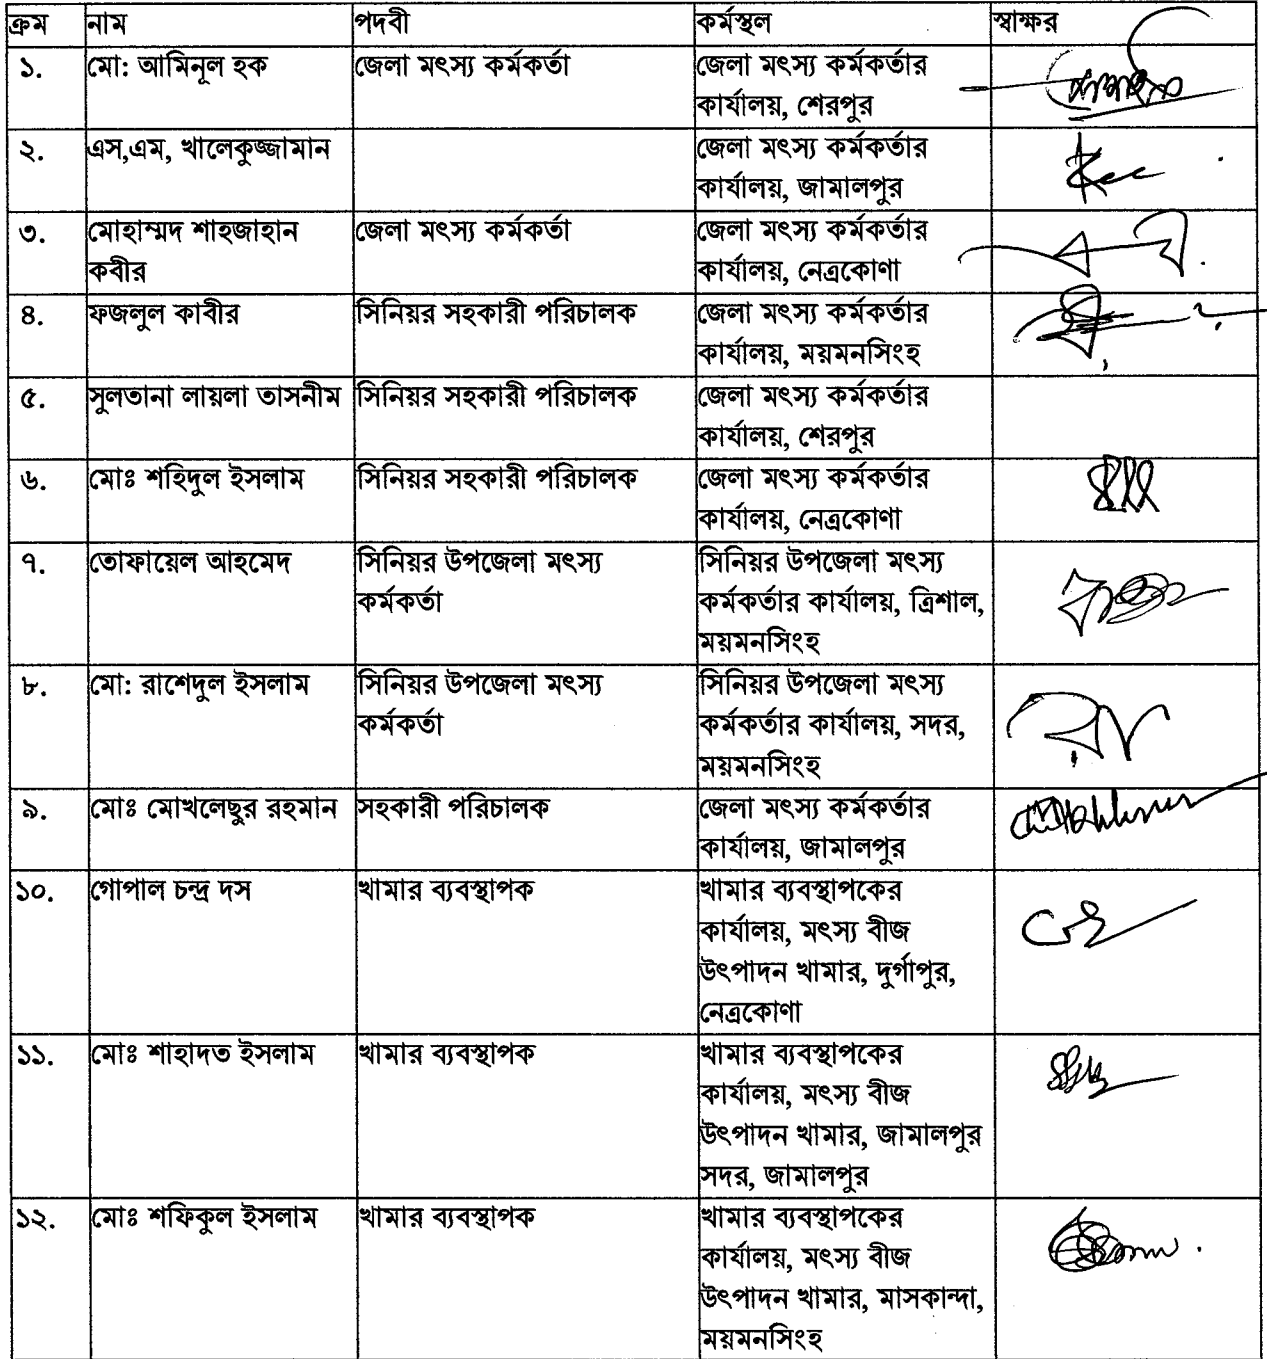 ক্রম নাম পদবী কর্মস্থল স্বাক্ষর
১. মো: আমিনূল হক জেলা মৎস্য কর্মকর্তা জেলা মৎস্য কর্মকর্তার
কার্যালয়, শেরপুর
২. এস,এম, খালেকুজ্জামান জেলা মৎস্য কর্মকর্তার
কার্যালয়, জামালপুর
৩. মোহাম্মদ শাহজাহান জেলা মৎস্য কর্মকর্তা জেলা মৎস্য কর্মকর্তার
কবীর কার্যালয়, নেত্রকোণা
৪. ফজলুল কাবীর সিনিয়র সহকারী পরিচালক জেলা মৎস্য কর্মকর্তার
কার্যালয়, ময়মনসিংহ
৫. সুলতানা লায়লা তাসনীম সিনিয়র সহকারী পরিচালক জেলা মৎস্য কর্মকর্তার
কার্যালয়, শেরপুর
৬. মোঃ শহিদুল ইসলাম সিনিয়র সহকারী পরিচালক জেলা মৎস্য কর্মকর্তার
কার্যালয়, নেত্রকোণা
৭. তোফায়েল আহমেদ সিনিয়র উপজেলা মৎস্য সিনিয়র উপজেলা মৎস্য
কর্মকর্তা কর্মকর্তার কার্যালয়, ত্রিশাল,
ময়মনসিংহ
৮. মো: রাশেদুল ইসলাম সিনিয়র উপজেলা মৎস্য সিনিয়র উপজেলা মৎস্য
কর্মকর্তা কর্মকর্তার কার্যালয়, সদর,
ময়মনসিংহ
৯. মোঃ মোখলেছুর রহমান সহকারী পরিচালক জেলা মৎস্য কর্মকর্তার
কার্যালয়, জামালপুর
১০. গোপাল চন্দ্র দস খামার ব্যবস্থাপক খামার ব্যবস্থাপকের
কার্যালয়, মৎস্য বীজ
উৎপাদন খামার, দুর্গাপুর,
নেত্রকোণা
১১. মোঃ শাহাদত ইসলাম খামার ব্যবস্থাপক খামার ব্যবস্থাপকের
কার্যালয়, মৎস্য বীজ
উৎপাদন খামার, জামালপুর
সদর, জামালপুর
১২. মোঃ শফিকুল ইসলাম খামার ব্যবস্থাপক খামার ব্যবস্থাপকের
কার্যালয়, মৎস্য বীজ
উৎপাদন খামার, মাসকান্দা,
ময়মনসিংহ